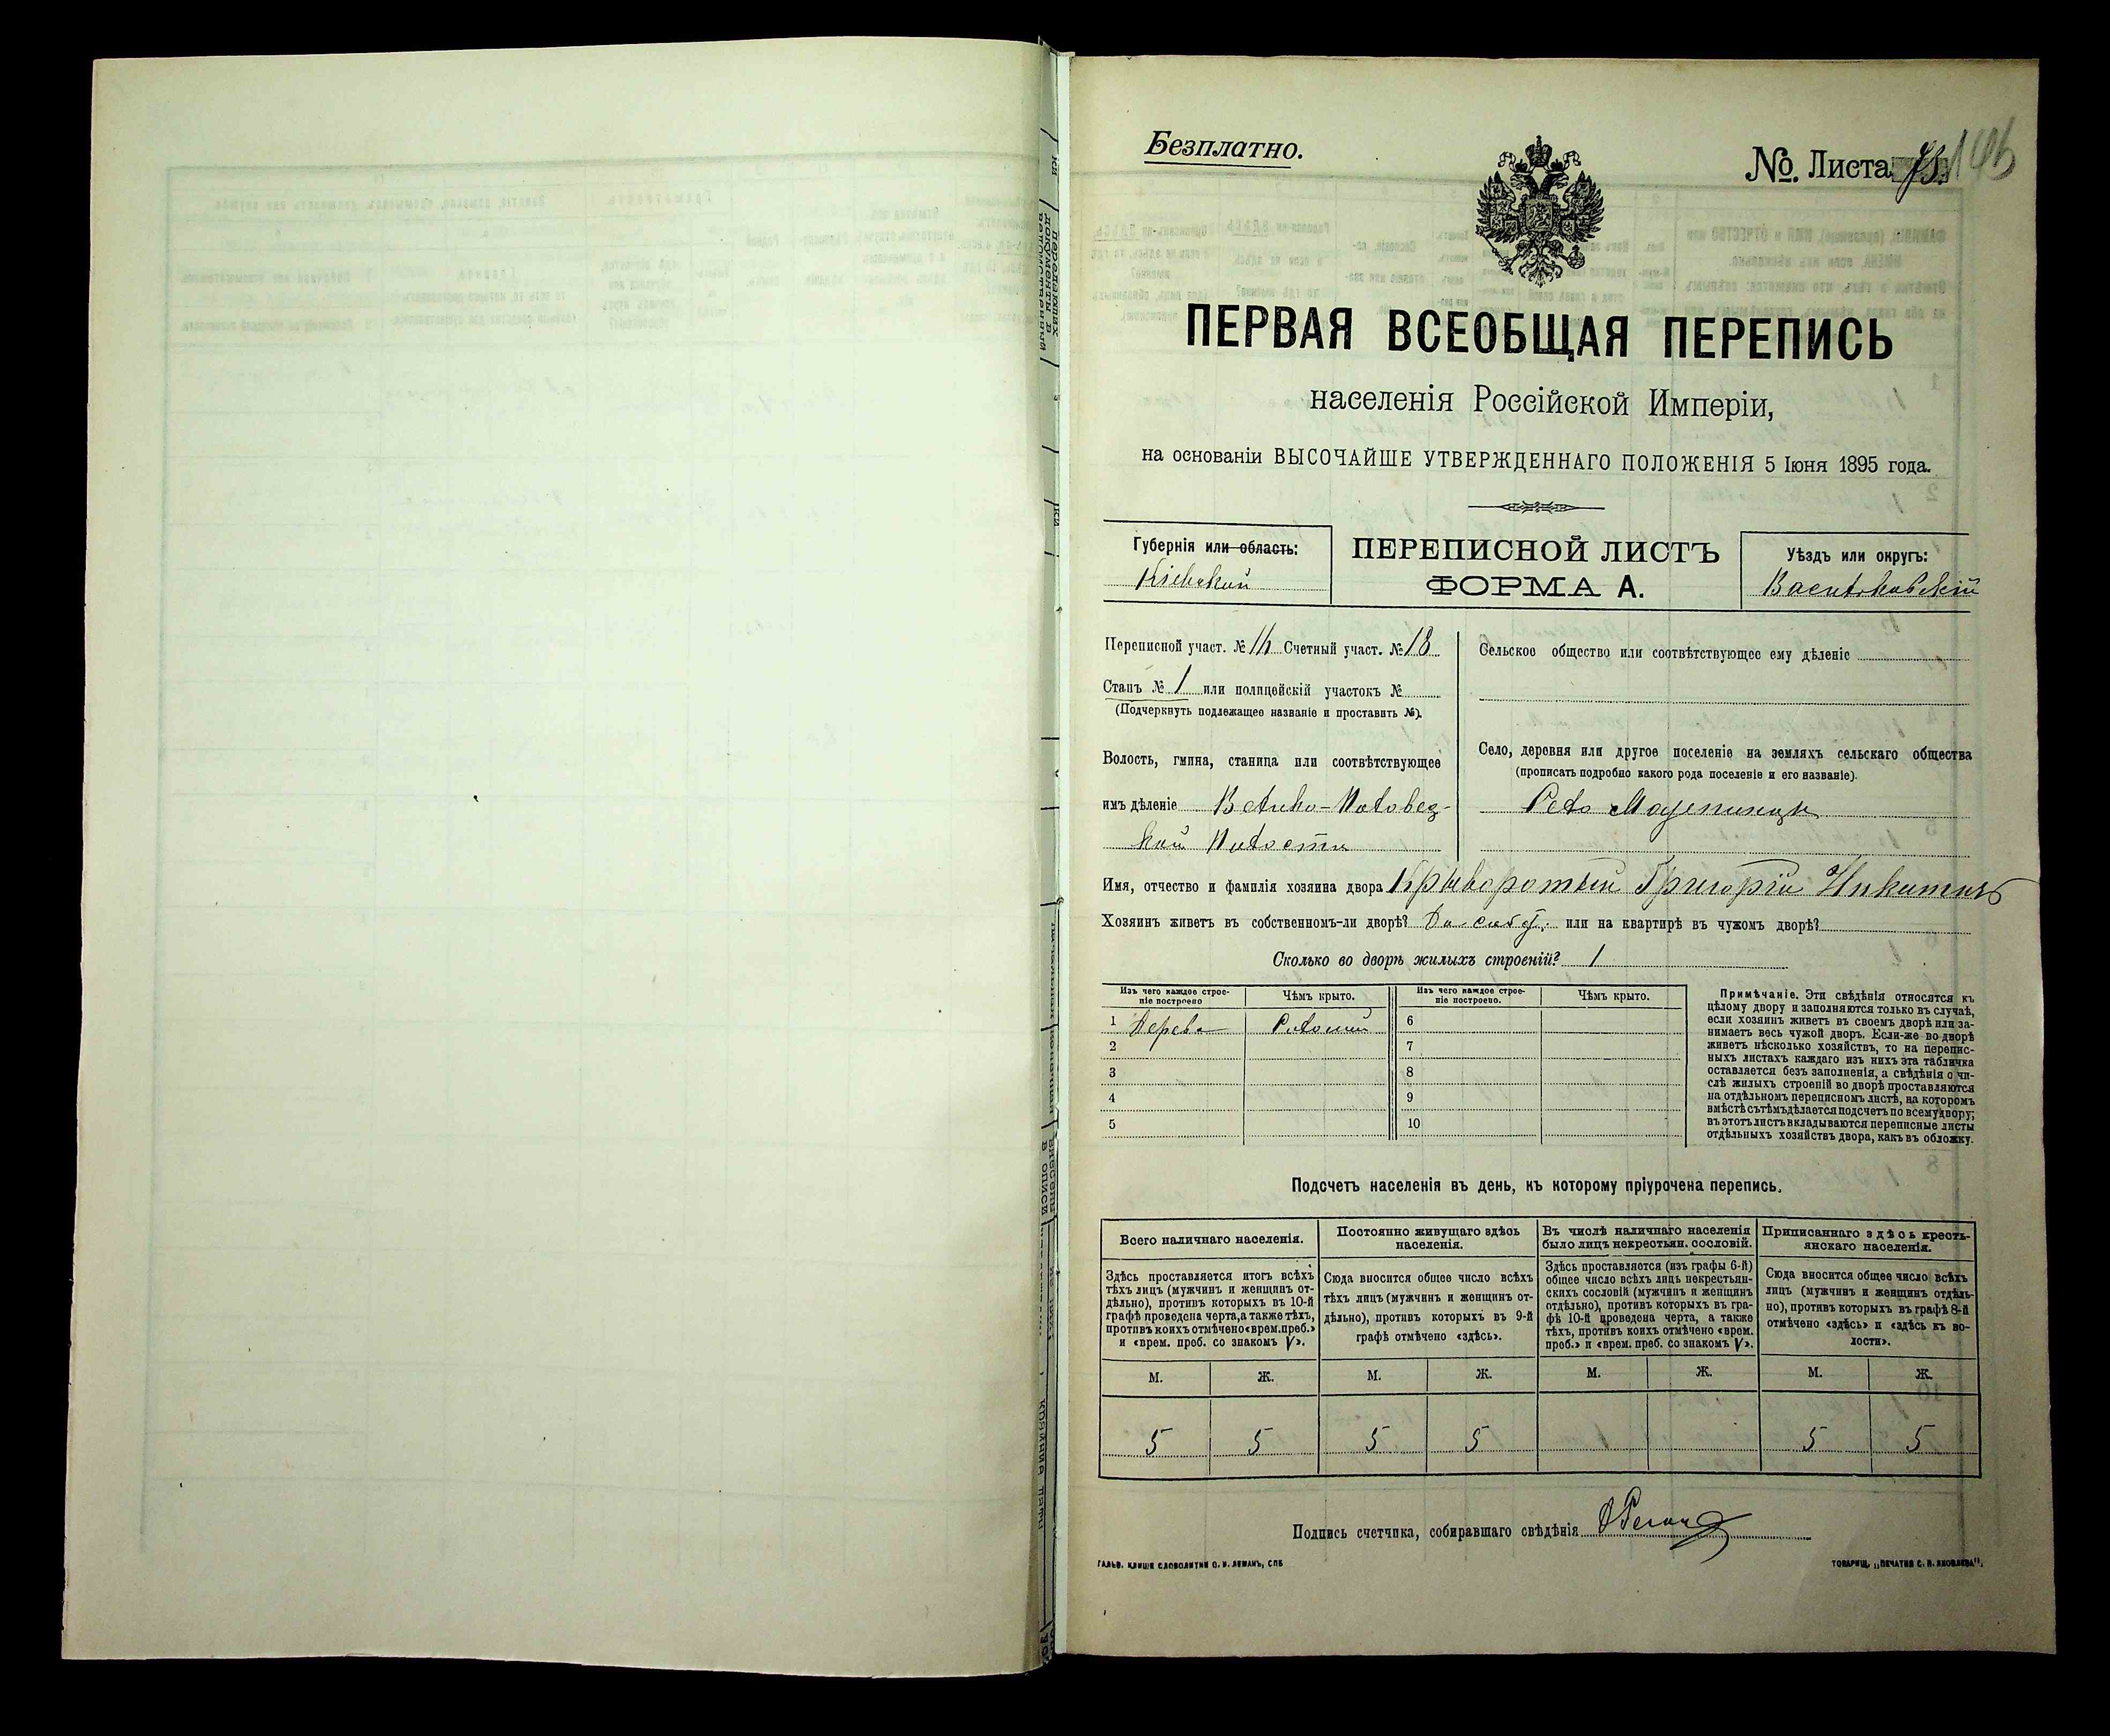 Безплатно.
No. Листа 73.
ПЕРВАЯ ВСЕОБЩАЯ ПЕРЕПИСЬ
населенія Россійской Имперіи,
на основаніи ВЫСОЧАЙШЕ УТВЕРЖДЕННАГО ПОЛОЖЕНІЯ 5 Іюня 1895 года.
Губернія или область:
Кіевской
ПЕРЕПИСНОЙ ЛИСТЪ
ФОРМА А.
Уѣздъ или округъ:
Васильковскій
Переписной участ. № 14 Счетный участ. № 18
Станъ № 1 или полицейскій участокъ №
(Подчеркнуть подлежащее названіе и проставить №).
Волость, гмина, станица или соотвѣтствующее
имъ дѣленіе Велико-Половец-
кой Волости
Сельское общество или соотвѣтствующее ему дѣленіе
Село, деревня или другое поселеніе на земляхъ сельскаго общества
(прописать подробно какого рода поселеніе и его названіе).
Село Мазепинцы
Имя, отчество и фамилія хозяина двора Криворотый Григорій Никитинъ
Хозяинъ живетъ въ собственномъ-ли дворѣ? или на квартирѣ въ чужомъ дворѣ?
Сколько во дворѣ жилыхъ строеній? 1
Изъ чего каждое строе-
ніе построено
Чѣмъ крыто.
Изъ чего каждое строе-
ніе построено.
Чѣмъ крыто.
1 Дерева Соломой 6
2 7
3 8
4 9
5 10
Примѣчаніе. Эти свѣдѣнія относятся къ
цѣлому двору и заполняются только въ случаѣ,
если хозяинъ живетъ въ своемъ дворѣ или за-
нимаетъ весь чужой дворъ. Если-же во дворѣ
живетъ нѣсколько хозяйствъ, то на перепис-
ныхъ листахъ каждаго изъ нихъ эта табличка
оставляется безъ заполненія, а свѣдѣнія о чи-
слѣ жилыхъ строеній во дворѣ проставляются
на отдѣльномъ переписномъ листѣ, на которомъ
вмѣстѣ съ тѣмъ дѣлается подсчетъ по всему двору;
въ этотъ листъ вкладываются переписные листы
отдѣльныхъ хозяйствъ двора, какъ въ обложку.
Подсчетъ населенія въ день, къ которому пріурочена перепись.
Всего наличнаго населенія.
Здѣсь проставляется итогъ всѣхъ
тѣхъ лицъ (мужчинъ и женщинъ от-
дѣльно), противъ которыхъ въ 10-й
графѣ проведена черта, а также тѣхъ,
противъ коихъ отмѣчено «врем. преб.»
и «врем. преб. со знакомъ V».
Постоянно живущаго здѣсь
населенія.
Сюда вносится общее число всѣхъ
тѣхъ лицъ (мужчинъ и женщинъ от-
дѣльно), противъ которыхъ въ 9-й
графѣ отмѣчено «здѣсь».
Въ числѣ наличнаго населенія
было лицъ некрестьян. сословій.
Здѣсь проставляется (изъ графы 6-й)
общее число всѣхъ лицъ некрестьян-
скихъ сословій (мужчинъ и женщинъ
отдѣльно), противъ которыхъ въ гра-
фѣ 10-й проведена черта, а также
тѣхъ, противъ коихъ отмѣчено «врем.
преб.» и «врем. преб. со знакомъ V».
Приписаннаго здѣсь кресть-
янскаго населенія.
Сюда вносится общее число всѣхъ
лицъ (мужчинъ и женщинъ отдѣль-
но), противъ которыхъ въ графѣ 8-й
отмѣчено «здѣсь» и «здѣсь къ во-
лости».
М. Ж. М. Ж. М. Ж. М. Ж.
5 5 5 5 5 5
Подпись счетчика, собиравшаго свѣдѣнія
ГАЛЬВ. КЛИШЕ СЛОВОЛИТНИ О. И. ЛЕМАНЪ, СПБ
ТОВАРИЩ. „ПЕЧАТНЯ С. П. ЯКОВЛЕВА".